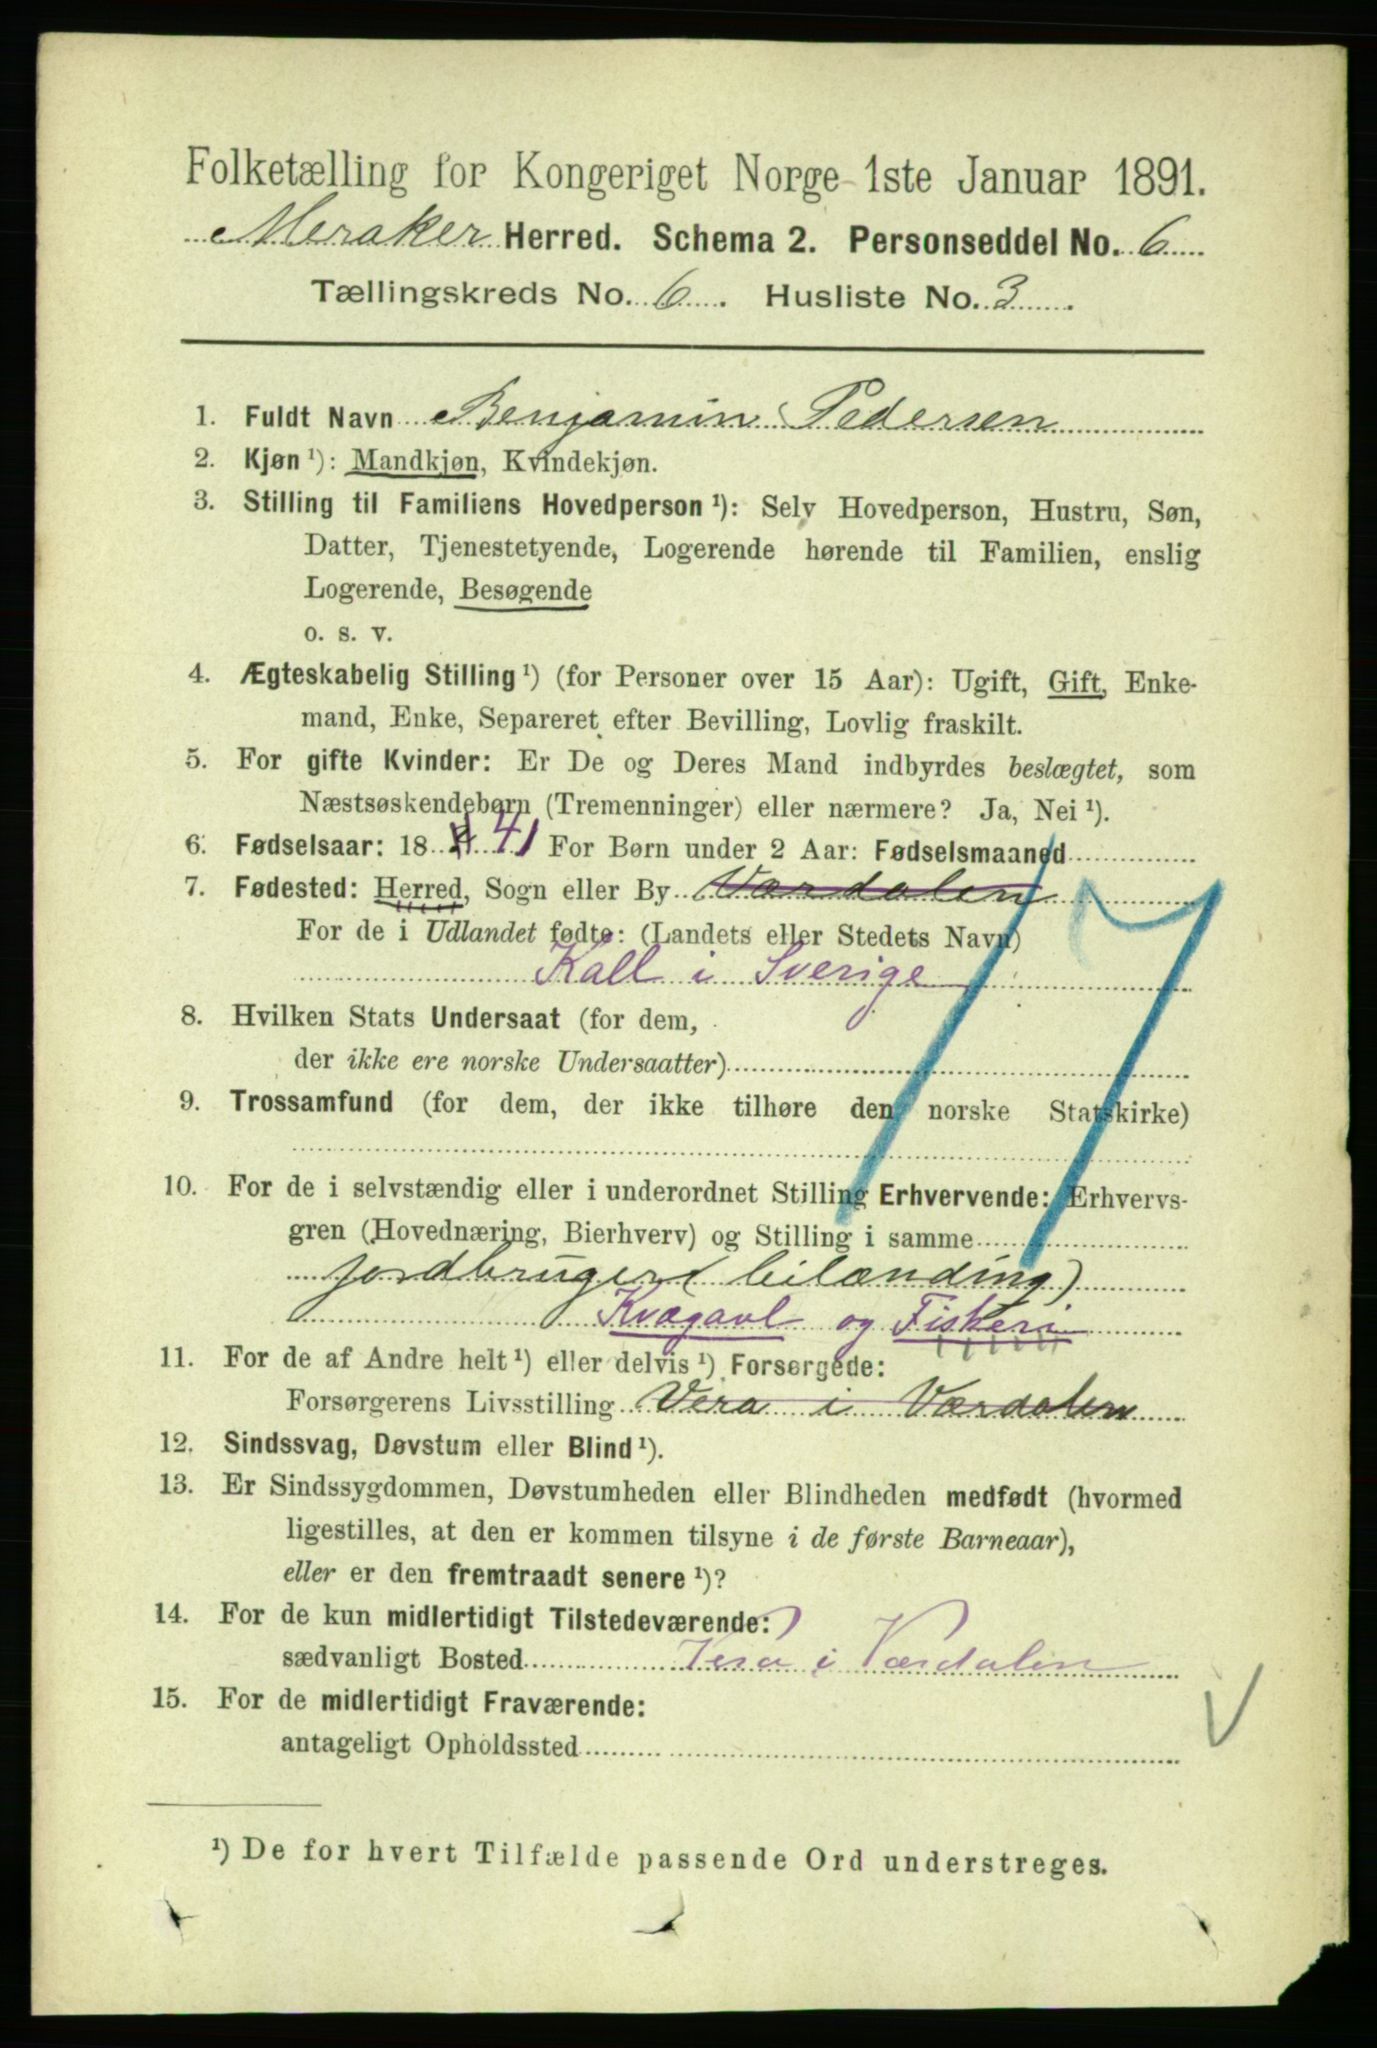 Folketælling for Kongeriget Norge 1ste Januar 1891.
Meraker Herred. Schema 2. Personseddel No. 6
Tællingskreds No. 6. Husliste No. 3.
1. Fuldt Navn Benjamin Pedersen
2. Kjøn ¹): Mandkjøn, Kvindekjøn.
3. Stilling til Familiens Hovedperson ¹): Selv Hovedperson, Hustru, Søn,
Datter, Tjenestetyende, Logerende hørende til Familien, enslig
Logerende, Besøgende
o. s. v.
4. Ægteskabelig Stilling ¹) (for Personer over 15 Aar): Ugift, Gift, Enke-
mand, Enke, Separeret efter Bevilling, Lovlig fraskilt.
5. For gifte Kvinder: Er De og Deres Mand indbyrdes beslægtet, som
Næstsøskendebørn (Tremenninger) eller nærmere? Ja, Nei ¹).
6. Fødselsaar: 18 41 For Børn under 2 Aar: Fødselsmaaned
7. Fødested: Herred, Sogn eller By Værdalen
For de i Udlandet fødte: (Landets eller Stedets Navn)
Kall i Sverige
8. Hvilken Stats Undersaat (for dem,
der ikke ere norske Undersaatter)
9. Trossamfund (for dem, der ikke tilhøre den norske Statskirke)
10. For de i selvstændig eller i underordnet Stilling Erhvervende: Erhvervs-
gren (Hovednæring, Bierhverv) og Stilling i samme
jordbruger (leilænding)
Kvægavl og Fiskeri
11. For de af Andre helt ¹) eller delvis ¹) Forsørgede:
Forsørgerens Livsstilling Vera i Værdalen
12. Sindssvag, Døvstum eller Blind ¹).
13. Er Sindssygdommen, Døvstumheden eller Blindheden medfødt (hvormed
ligestilles, at den er kommen tilsyne i de første Barneaar),
eller er den fremtraadt senere ¹)?
14. For de kun midlertidigt Tilstedeværende:
sædvanligt Bosted Vera i Værdalen
15. For de midlertidigt Fraværende:
antageligt Opholdssted
¹) De for hvert Tilfælde passende Ord understreges.